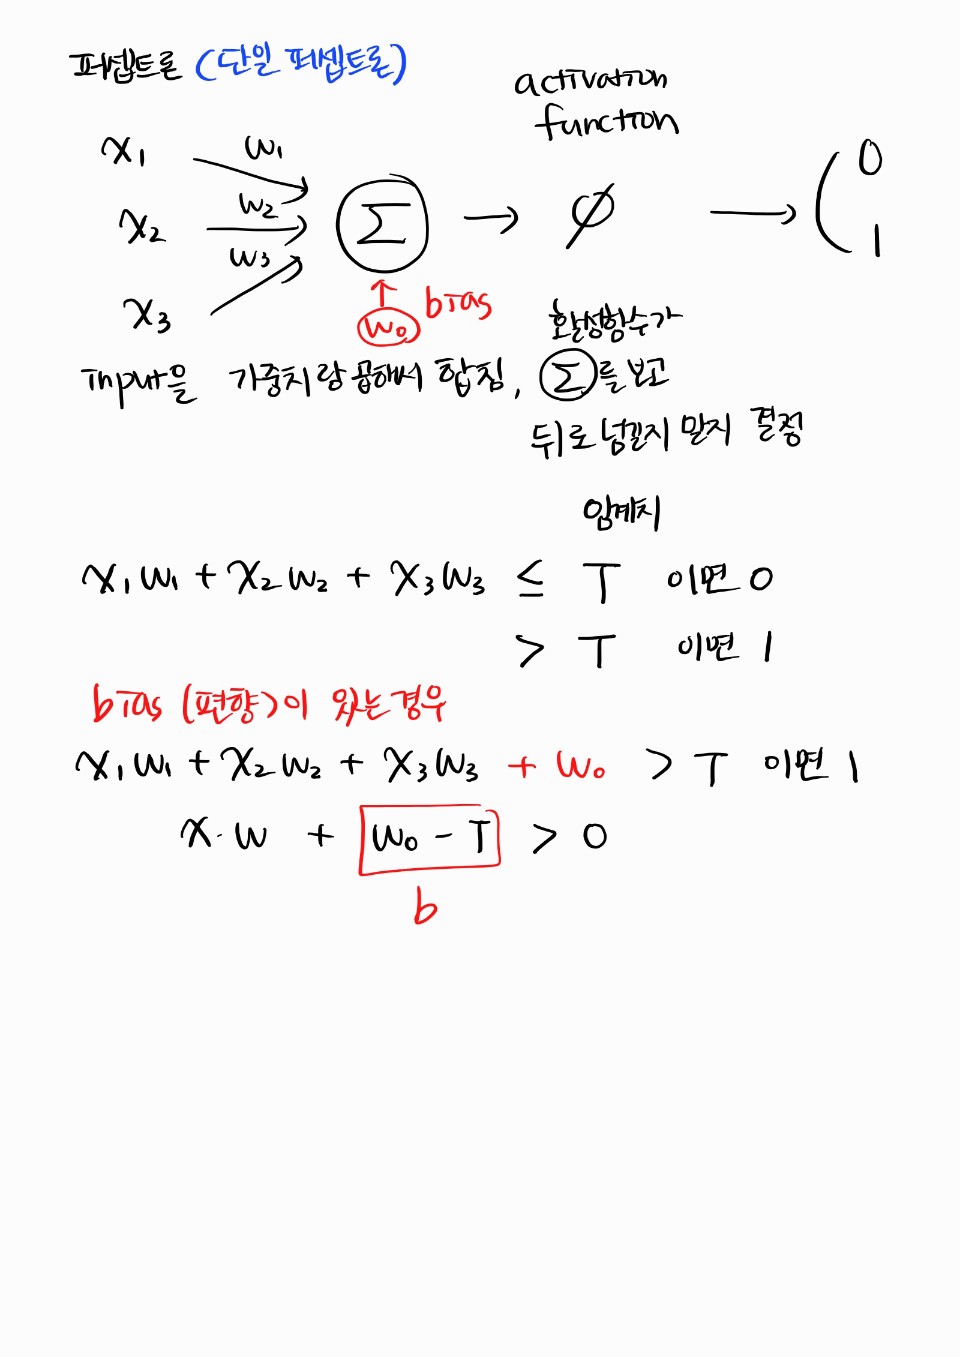 퍼셉트론 (단일 퍼셉트론)
activation
function
x₁ w₁
x₂ w₂
x₃ w₃
Σ → ϕ → ( 0
1
↑ bias
w₀
활성함수가
input을 가중치랑 곱해서 합침, Σ를 보고
뒤로 넘길지 말지 결정
임계치
x₁w₁ + x₂w₂ + x₃w₃ ≤ T 이면 0
> T 이면 1
bias (편향)이 있는경우
x₁w₁ + x₂w₂ + x₃w₃ + w₀ > T 이면 1
x·w + w₀ - T > 0
b